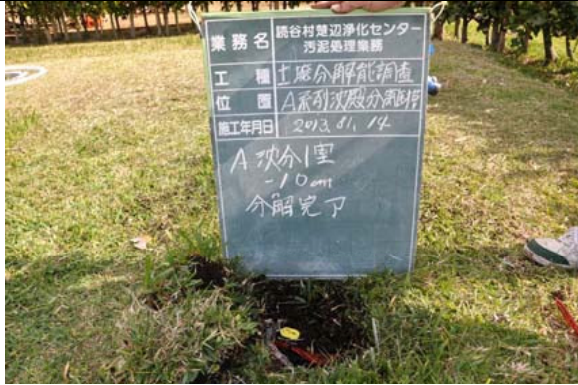 業務名 読谷村楚辺浄化センター
汚泥処理業務
工種 土壌分解能調査
位置 A系列沈殿分離槽
施工年月日 2013.01.14
A沈分1室
-10cm
分解完了